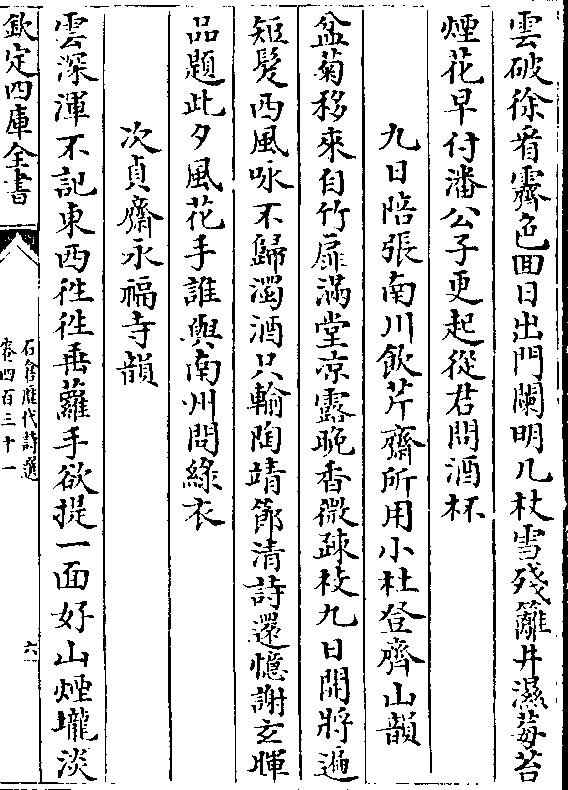 雲破徐看霽色回日出門闌明几杖雪殘籬井濕莓苔
煙花早付潘公子更起從君問酒杯
九日陪張南川飲芹齋所用小杜登齊山韻
盆菊移來自竹扉滿堂凉露晚香微疎枝九日開將遍
短髮西風咏不歸濁酒只輸陶靖節清詩還憶謝玄暉
品題此夕風花手誰與南州問綠衣
次貞齋永福寺韻
雲深渾不記東西徃徃垂蘿手欲提一面好山煙壠淡
欽定四庫全書
石倉歷代詩選
卷四百三十一
六